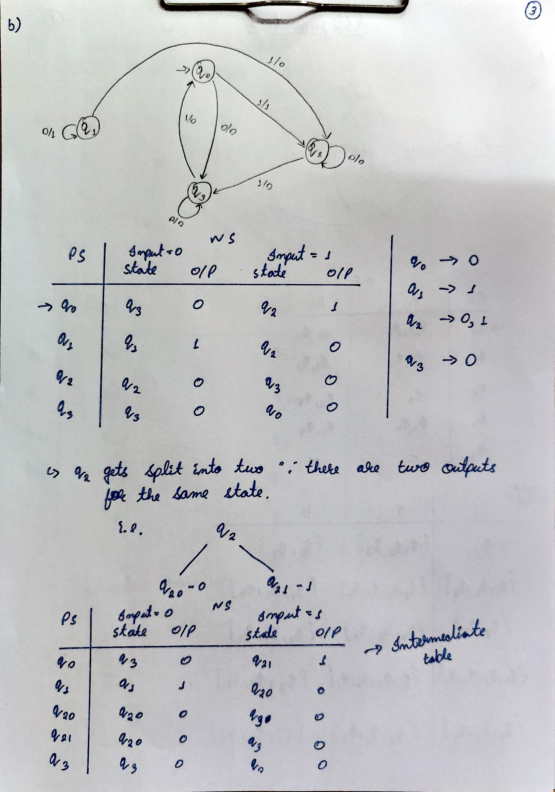 3
b)
1/0
q0
0/1
q1
1/0
0/0
1/1
q2
0/0
1/0
q3
0/0
NS
PS Input=0 Input = 1
state O/P state O/P
→ q0 q3 0 q2 1
q1 q1 1 q2 0
q2 q2 0 q3 0
q3 q3 0 q0 0
q0 → 0
q1 → 1
q2 → 0, 1
q3 → 0
↳ q2 gets split into two ∵ there are two outputs
for the same state.
i.e. q2
q20 - 0 q21 - 1
NS
PS Input = 0 Input = 1
state O/P state O/P
q0 q3 0 q21 1
q1 q1 1 q20 0
q20 q20 0 0
q21 q20 0 q3 0
q3 q3 0 q0 0
→ Intermediate
table